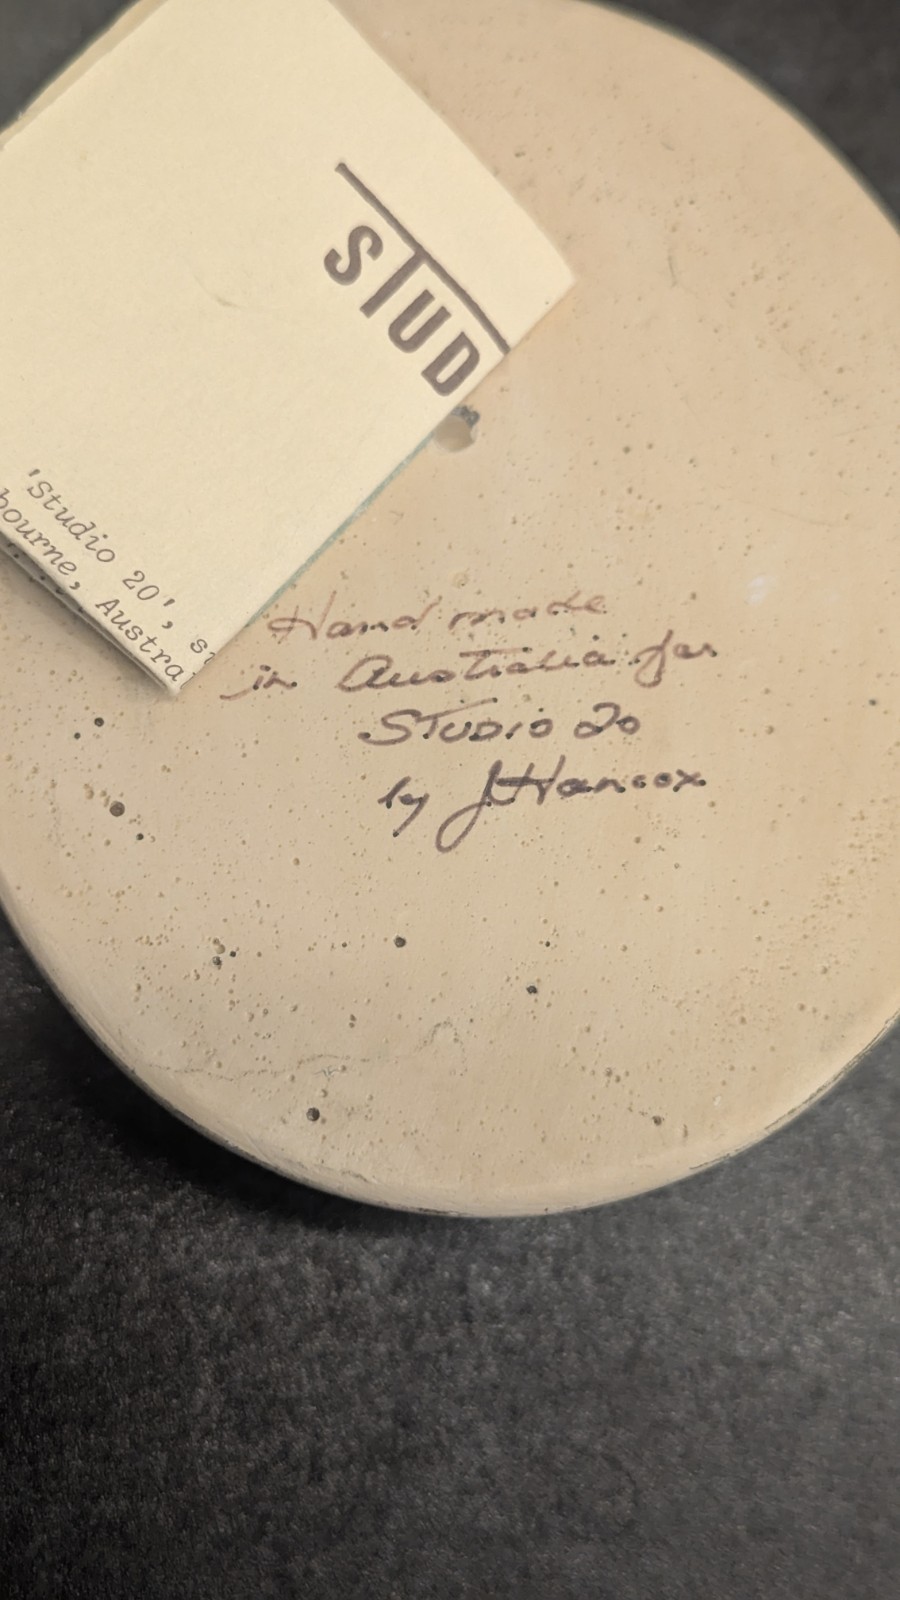 STUD
'Studio 20', s
bourne, Austra
Hand made
in Australia for
STUDIO 20
by J Hancox